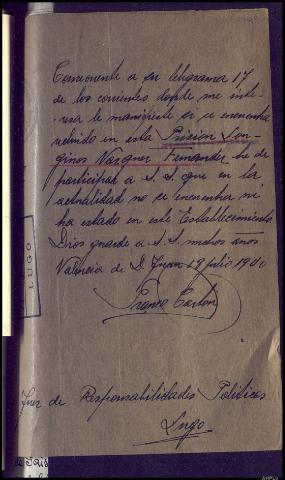 Concerniente a su telegrama 17
de los corrientes donde me inte-
resa le manifieste si se encuentra
detenido en esta Prision Lon-
ginos Vazquez Fernandez he de
participar a S. S. que en la
actualidad no se encuentra ni
ha estado en este Establecimiento
Dios guarde a S. S. muchos años
Valencia de D. Juan 19 julio 1940
Juez de Responsabilidades Politicas
Lugo.
LUGO